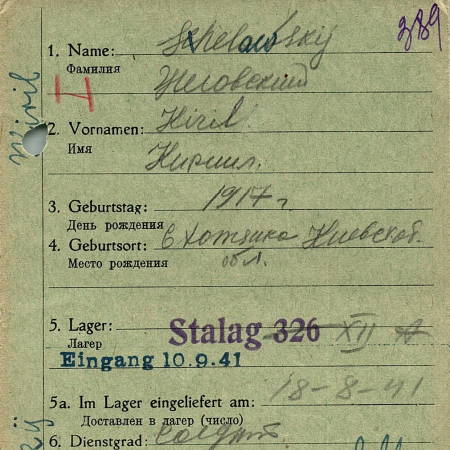 389
1. Name: Schelowskij
Фамилия Желовский
2. Vornamen: Kiril
Имя Кирилл
3. Geburtstag: 1917 г
День рождения
4. Geburtsort: Киевской
Место рождения обл.
5. Lager: Stalag 326 XII A
Лагер
Eingang 10.9.41
5a. Im Lager eingeliefert am: 18-8-41
Доставлен в лагер (число)
6. Dienstgrad: Солдат